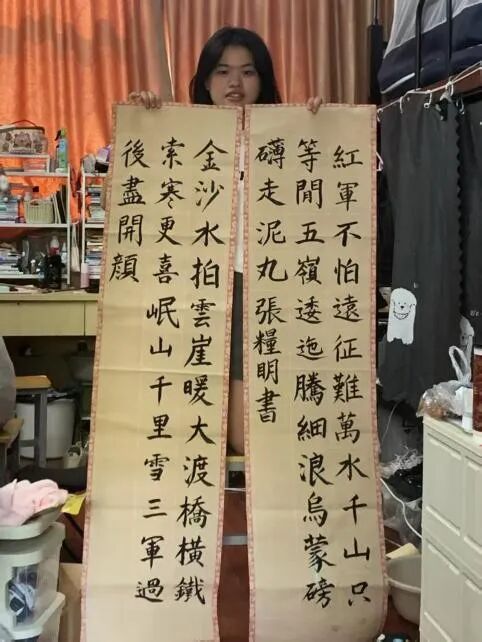 紅軍不怕遠征難萬水千山只
等閒五嶺逶迤騰細浪烏蒙磅
礴走泥丸張糧明書
金沙水拍雲崖暖大渡橋橫鐵
索寒更喜岷山千里雪三軍過
後盡開顏